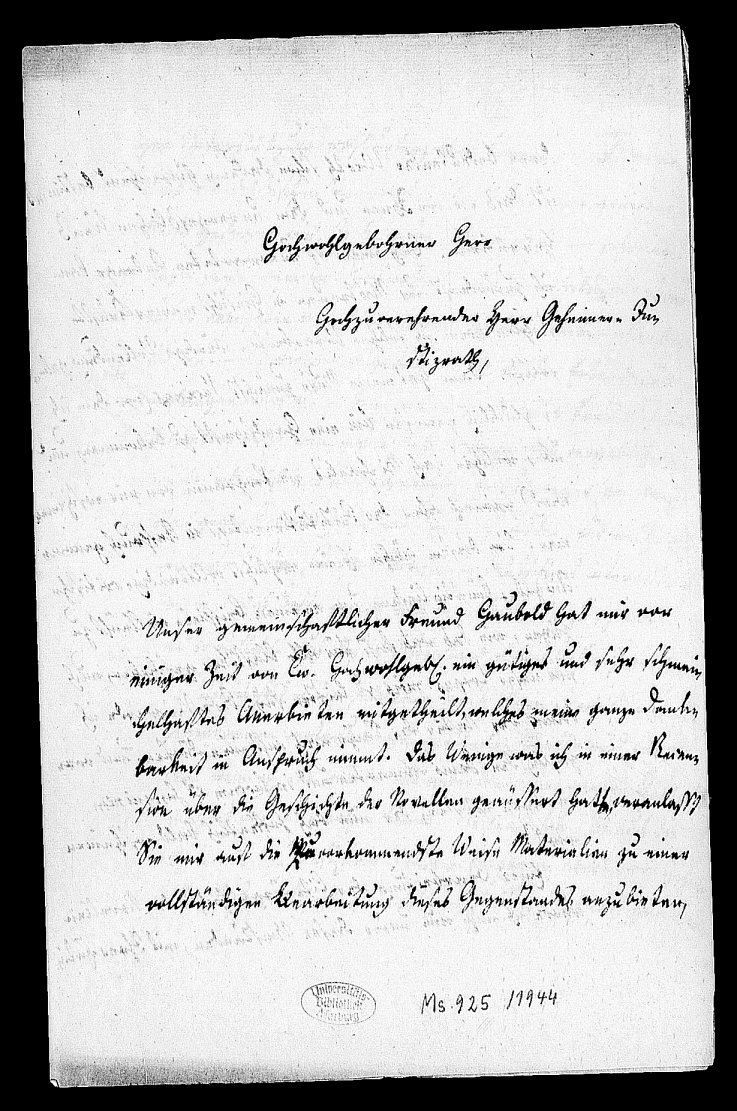 Hochwohlgebohrner Herr
Hochzuverehrender Herr Geheimer- Ju-
stizrath,
Unser gemeinschaftlicher Freund Haubold hat mir vor
einiger Zeit von Ew. Hochwohlgeb. ein gütiges und sehr schmei-
chelhaftes Anerbieten mitgetheilt, welches meine ganze Dank-
barkeit in Anspruch nimmt. Das Wenige was ich in einer Recen-
sion über die Geschichte der Novellen geäussert hatte, veranlaßt
Sie mir auf die zuvorkommendste Weise Materialien zu einer
vollständigen Bearbeitung dieses Gegenstandes anzubieten,
Universitäts-
Bibliothek
Marburg
Ms. 925 / 1944